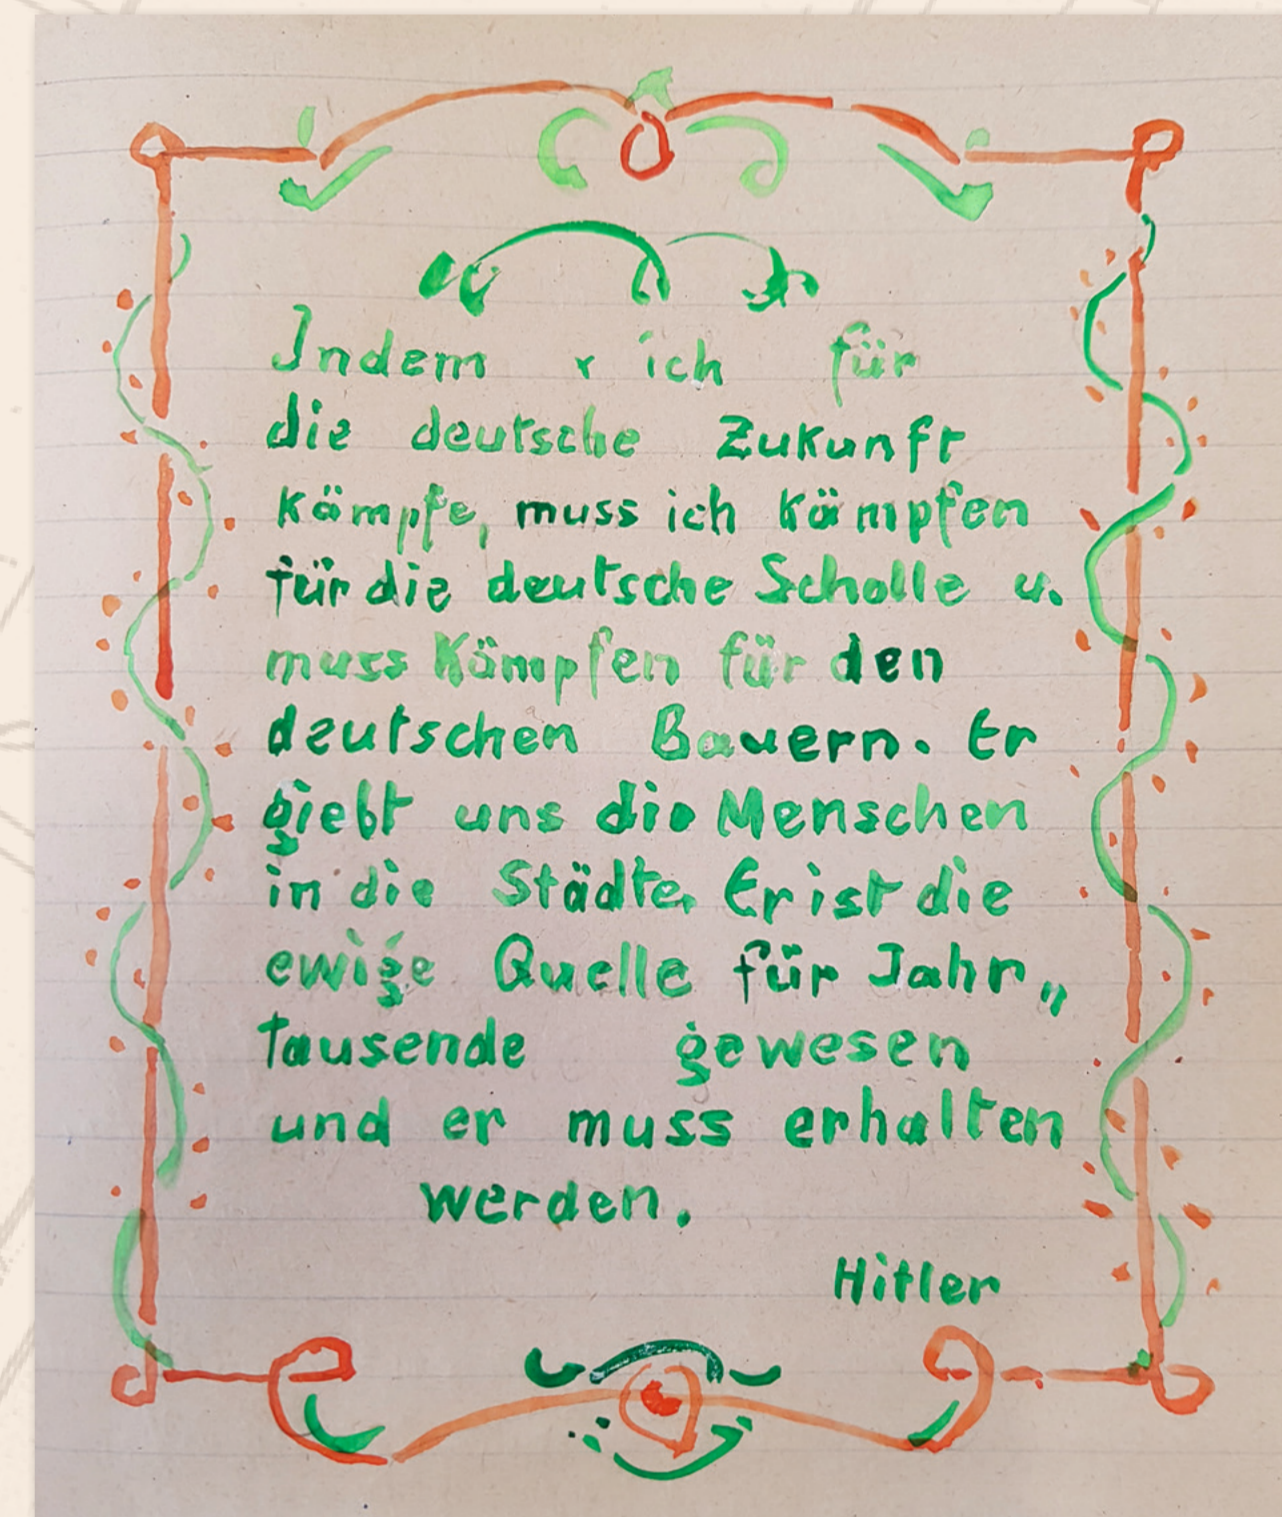 Indem ich für
die deutsche Zukunft
kämpfe, muss ich kämpfen
für die deutsche Scholle u.
muss kämpfen für den
deutschen Bauern. Er
giebt uns die Menschen
in die Städte, Er ist die
ewige Quelle für Jahr„
tausende gewesen
und er muss erhalten
werden.
Hitler